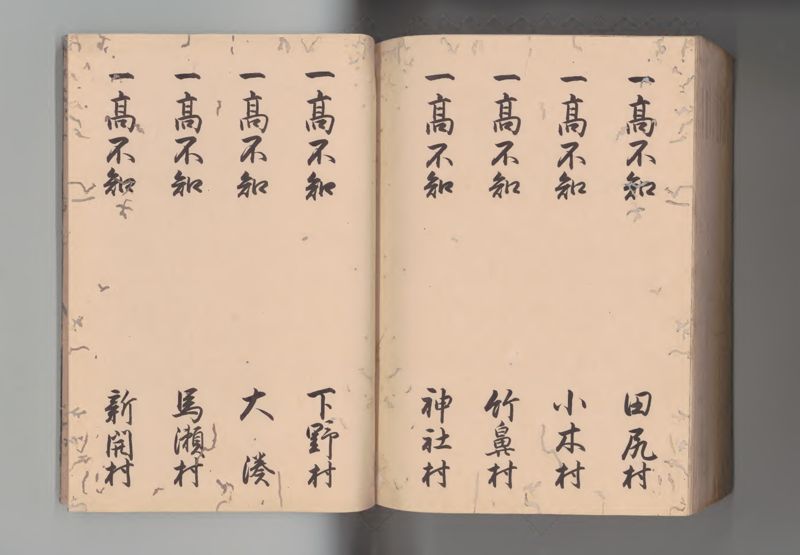 一髙不知 田尻村
一髙不知 小木村
一髙不知 竹鼻村
一髙不知 神社村
一髙不知 下野村
一髙不知 大湊
一髙不知 馬瀬村
一髙不知 新開村